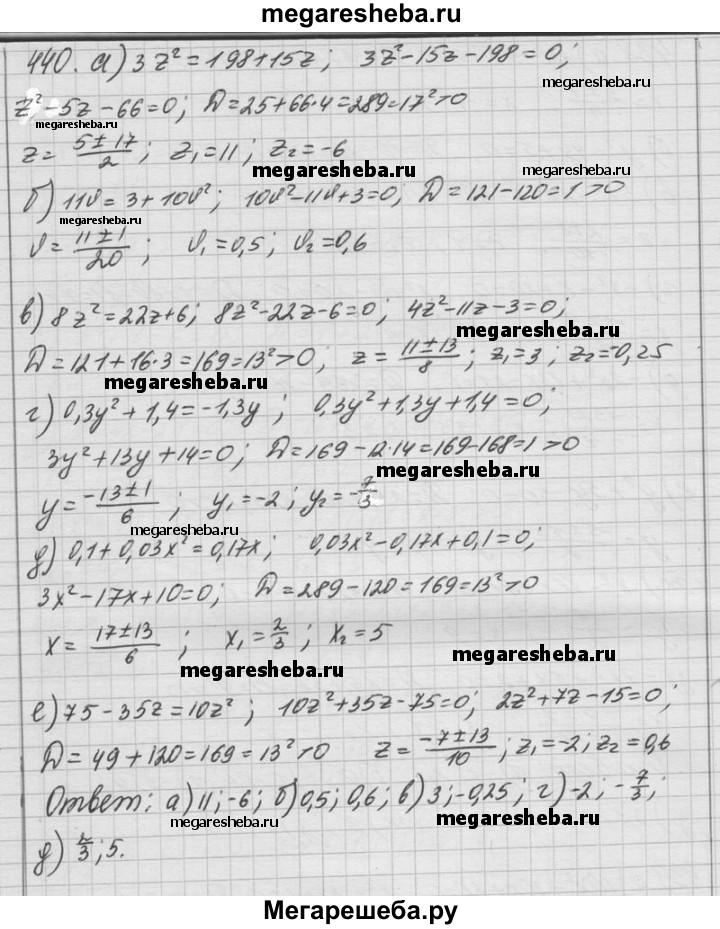 megaresheba.ru
440. а) 3z² = 198+15z; 3z²-15z-198=0;
megaresheba.ru
z²-5z-66=0; D=25+66·4=289=17²>0
megaresheba.ru megaresheba.ru
z= (5±17)/2; z₁=11; z₂=-6
megaresheba.ru
б) 11υ=3+10υ²; 10υ²-11υ+3=0; D=121-120=1>0
megaresheba.ru megaresheba.ru
υ= (11±1)/20; υ₁=0,5; υ₂=0,6
в) 8z²=22z+6; 8z²-22z-6=0; 4z²-11z-3=0;
megaresheba.ru
D=121+16·3=169=13²>0; z= (11±13)/8; z₁=3; z₂=-0,25
megaresheba.ru megaresheba.ru
г) 0,3y²+1,4=-1,3y; 0,3y²+1,3y+1,4=0;
3y²+13y+14=0; D=169-12·14=169-168=1>0
megaresheba.ru
y= (-13±1)/6; y₁=-2; y₂=-7/3
megaresheba.ru megaresheba.ru
д) 0,1+0,03x²=0,17x; 0,03x²-0,17x+0,1=0;
3x²-17x+10=0; D=289-120=169=13²>0
x= (17±13)/6; x₁=2/3; x₂=5
megaresheba.ru
megaresheba.ru
е) 75-35z=10z²; 10z²+35z-75=0; 2z²+7z-15=0;
D=49+120=169=13²>0 z= (-7±13)/10; z₁=-2; z₂=0,6
Ответ: а) 11; -6; б) 0,5; 0,6; в) 3; -0,25; г) -2; -7/3;
megaresheba.ru megaresheba.ru
д) 2/3; 5.
megaresheba.ru
Мегарешеба.ру